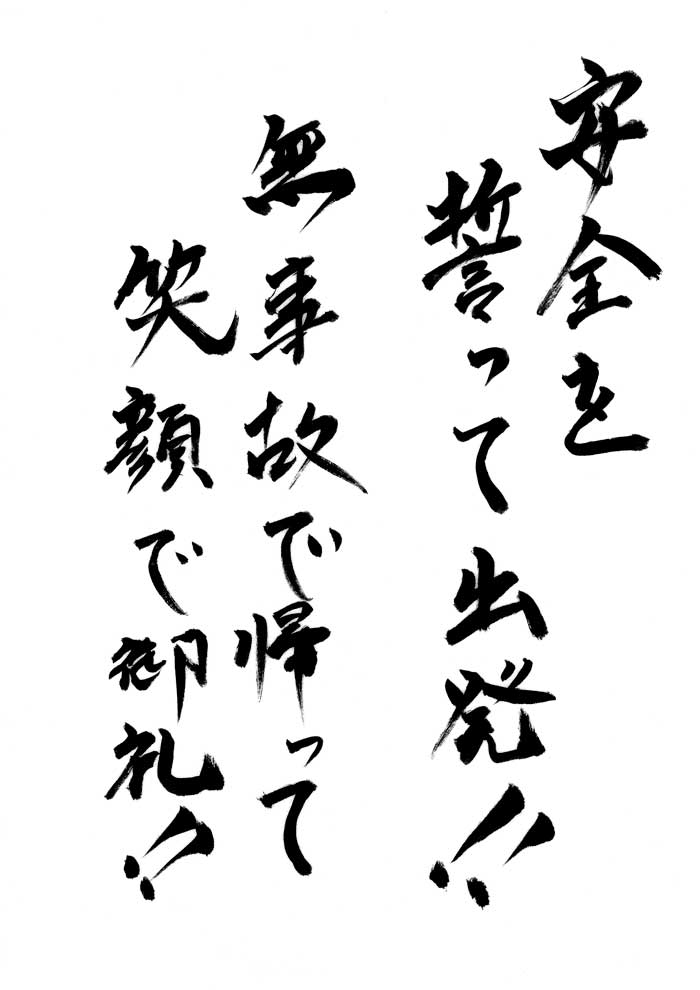 安全を
誓って出発!!
無事故で帰って
笑顔で御礼!!